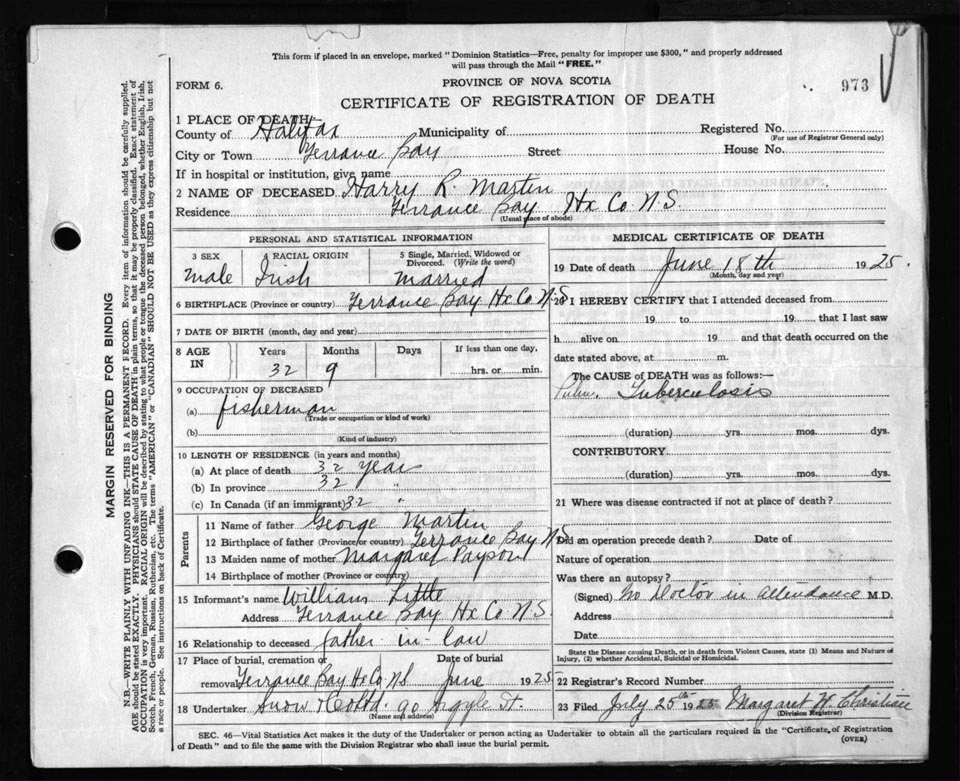 This form if placed in an envelope, marked "Dominion Statistics—Free, penalty for improper use $300," and properly addressed
will pass through the Mail "FREE."
FORM 6.
PROVINCE OF NOVA SCOTIA
973
CERTIFICATE OF REGISTRATION OF DEATH
1 PLACE OF DEATH
County of Halifax Municipality of Registered No.
(For use of Registrar General only)
City or Town Terrance Bay Street House No.
If in hospital or institution, give name
2 NAME OF DECEASED Harry R. Martin
Residence Terrance Bay Hx Co N.S.
(Usual place of abode)
PERSONAL AND STATISTICAL INFORMATION
3 SEX 4 RACIAL ORIGIN 5 Single, Married, Widowed or
Divorced. (Write the word)
Male Irish Married
6 BIRTHPLACE (Province or country) Terrance Bay Hx Co N.S
7 DATE OF BIRTH (month, day and year)
8 AGE IN Years Months Days If less than one day,
32 9 hrs. or min.
9 OCCUPATION OF DECEASED
(a) fisherman
(Trade or occupation or kind of work)
(b)
(Kind of industry)
10 LENGTH OF RESIDENCE (in years and months)
(a) At place of death 32 years
(b) In province 32 "
(c) In Canada (if an immigrant) 32 "
Parents
11 Name of father George Martin
12 Birthplace of father (Province or country) Terrance Bay N.S
13 Maiden name of mother Margaret Payson
14 Birthplace of mother (Province or country)
15 Informant's name William Little
Address Terrance Bay Hx Co N S
16 Relationship to deceased father-in-law
17 Place of burial, cremation or Date of burial
removal Terrance Bay Hx Co N S June 1925
18 Undertaker Snow & Co Ltd. 90 Argyle St.
(Name and address)
MEDICAL CERTIFICATE OF DEATH
19 Date of death June 18th 1925.
(Month, day and year)
20 I HEREBY CERTIFY that I attended deceased from
19 to 19 that I last saw
h alive on 19 and that death occurred on the
date stated above, at m.
The CAUSE of DEATH was as follows:—
Pulm. Tuberculosis
(duration) yrs. mos. dys.
CONTRIBUTORY
(duration) yrs. mos. dys.
21 Where was disease contracted if not at place of death?
Did an operation precede death? Date of
Nature of operation
Was there an autopsy?
(Signed) No Doctor in attendance M.D.
Address
Date
State the Disease causing Death, or in death from Violent Causes, state (1) Means and Nature of
Injury, (2) whether Accidental, Suicidal or Homicidal.
22 Registrar's Record Number
23 Filed July 25th 1925 Margaret W. Christian
(Division Registrar)
SEC. 46—Vital Statistics Act makes it the duty of the Undertaker or Person acting as Undertaker to obtain all the particulars required in the "Certificate of Registration
of Death" and to file the same with the Division Registrar who shall issue the burial permit.
(OVER)
MARGIN RESERVED FOR BINDING
N.B.—WRITE PLAINLY WITH UNFADING INK—THIS IS A PERMANENT RECORD. Every item of information should be carefully supplied.
AGE should be stated EXACTLY. PHYSICIANS should STATE CAUSE OF DEATH in plain terms, so that it may be properly classified. Exact statement of
OCCUPATION is very important. RACIAL ORIGIN will be described by stating to what people or tongue the deceased person belonged, whether English, Irish,
Scotch, French, German, Russian, Ruthenian, etc. The terms "AMERICAN" or "CANADIAN" SHOULD NOT BE USED as they express citizenship but not
a race or people. See instructions on back of Certificate.